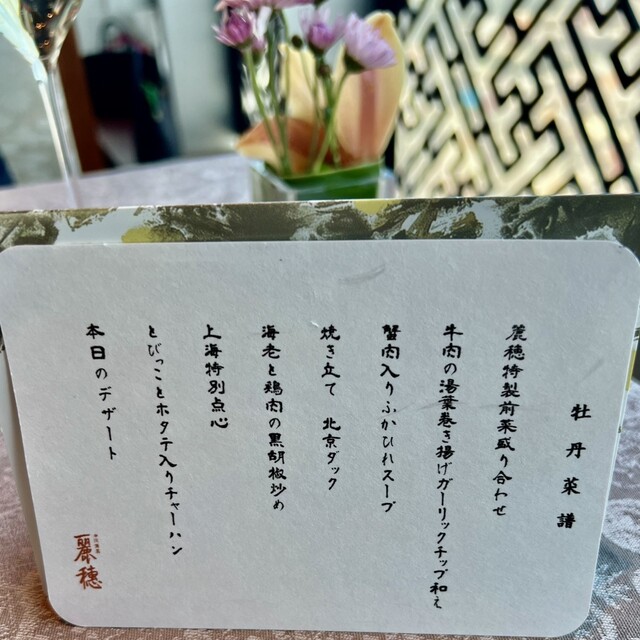 牡丹菜譜
麗穂特製前菜盛り合わせ
牛肉の湯葉巻き揚げガーリックチップ和え
蟹肉入りふかひれスープ
焼き立て 北京ダック
海老と鶏肉の黒胡椒炒め
上海特別点心
とびっことホタテ入りチャーハン
本日のデザート
麗穂